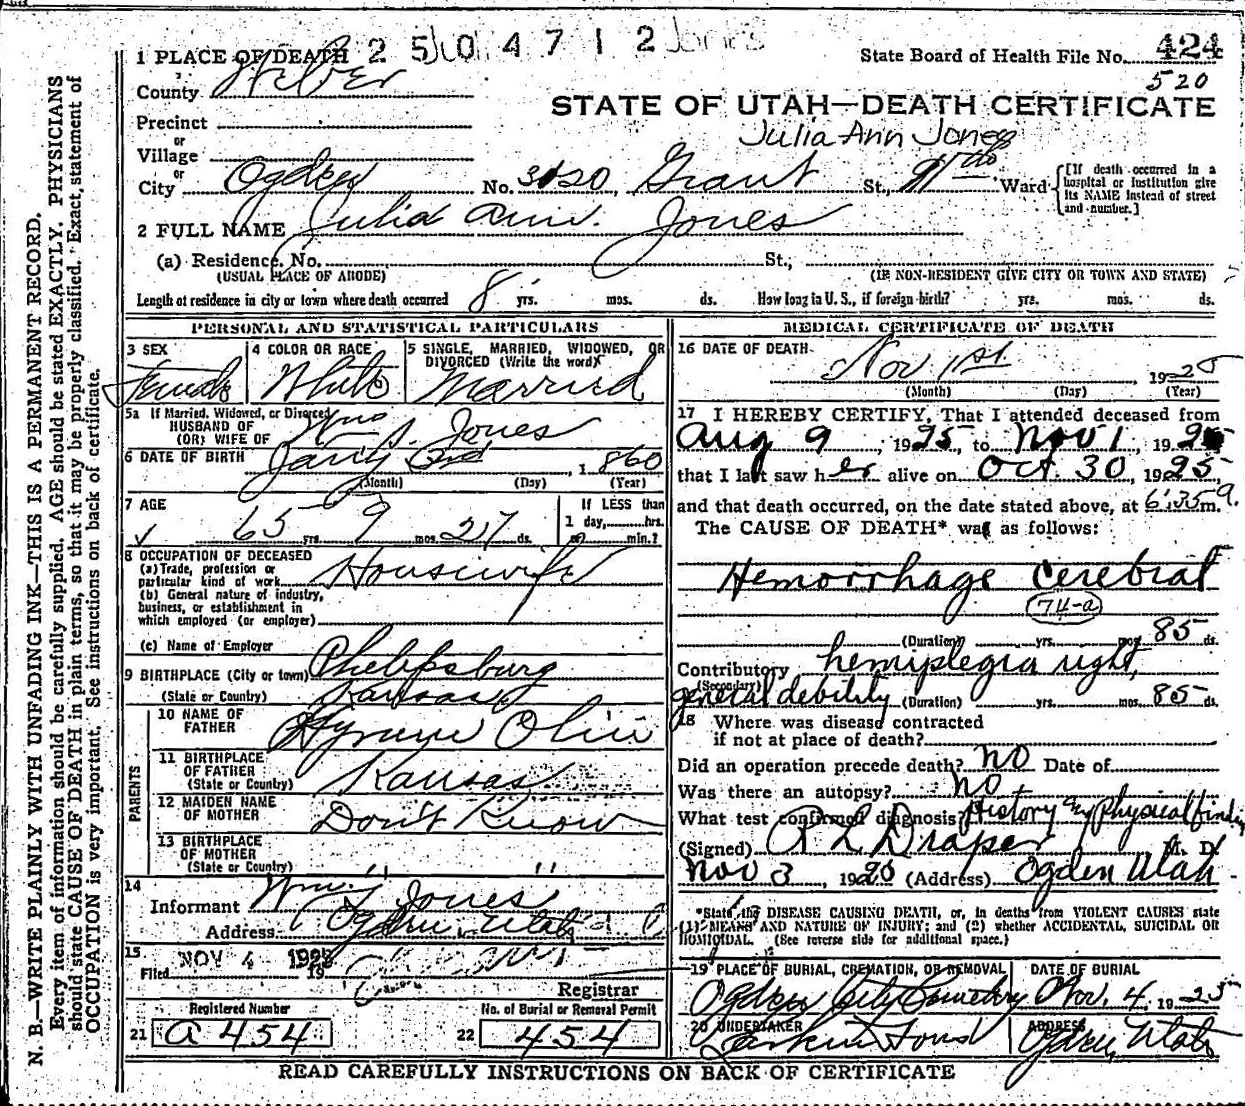 1 PLACE OF DEATH 2 5 0 4 7 1 2 Jones
State Board of Health File No. 424
520
County Weber
STATE OF UTAH—DEATH CERTIFICATE
Precinct
or
Village
Julia Ann Jones
or
City Ogden No. 3120 Grant St., Ward
[If death occurred in a hospital or institution give its NAME instead of street and number.]
2 FULL NAME Julia Ann. Jones
(a) Residence, No. St.,
(USUAL PLACE OF ABODE) (IF NON-RESIDENT GIVE CITY OR TOWN AND STATE)
Length of residence in city or town where death occurred 8 yrs. mos. ds. How long in U. S., if foreign birth? yrs. mos. ds.
PERSONAL AND STATISTICAL PARTICULARS
3 SEX
Female
4 COLOR OR RACE
White
5 SINGLE, MARRIED, WIDOWED, OR
DIVORCED (Write the word)
Married
5a If Married, Widowed, or Divorced
HUSBAND OF
(OR) WIFE OF Wm S. Jones
6 DATE OF BIRTH Jany 1860
(Month) (Day) (Year)
7 AGE
65 yrs. 9 mos. 27 ds.
If LESS than
1 day, hrs.
or min.?
8 OCCUPATION OF DECEASED
(a) Trade, profession or
particular kind of work Housewife
(b) General nature of industry,
business, or establishment in
which employed (or employer)
(c) Name of Employer
9 BIRTHPLACE (City or town) Phelpsburg
(State or Country) Kansas
PARENTS
10 NAME OF
FATHER Hyrum Olin
11 BIRTHPLACE
OF FATHER
(State or Country) Kansas
12 MAIDEN NAME
OF MOTHER Don't Know
13 BIRTHPLACE
OF MOTHER
(State or Country) " "
14
Informant Wm. Jones
Address Ogden Utah
15
Filed NOV 4 1925
Registrar
Registered Number
21 a 454
No. of Burial or Removal Permit
22 454
MEDICAL CERTIFICATE OF DEATH
16 DATE OF DEATH
Nov 1st 1925
(Month) (Day) (Year)
17 I HEREBY CERTIFY, That I attended deceased from
Aug 9, 1925, to Nov 1, 1925
that I last saw her alive on Oct. 30, 1925,
and that death occurred, on the date stated above, at 6:35 a.m.
The CAUSE OF DEATH* was as follows:
Hemorrhage Cerebral
74-a
(Duration) yrs. mos. 85 ds.
Contributory hemyplegia right,
(Secondary)
general debility (Duration) yrs. mos. 85 ds.
18 Where was disease contracted
if not at place of death?
Did an operation precede death? no Date of
Was there an autopsy? no
What test confirmed diagnosis? History & Physical findin
(Signed) R L Draper M. D.
Nov 3, 19 (Address) Ogden Utah
*State the DISEASE CAUSING DEATH, or, in deaths from VIOLENT CAUSES state
(1) MEANS AND NATURE OF INJURY; and (2) whether ACCIDENTAL, SUICIDAL OR
HOMICIDAL. (See reverse side for additional space.)
19 PLACE OF BURIAL, CREMATION, OR REMOVAL
Ogden City Cemetery
DATE OF BURIAL
Nov. 4, 1925
20 UNDERTAKER
Larkin & Sons
ADDRESS
Ogden, Utah
READ CAREFULLY INSTRUCTIONS ON BACK OF CERTIFICATE
N. B.—WRITE PLAINLY WITH UNFADING INK—THIS IS A PERMANENT RECORD.
Every item of information should be carefully supplied. AGE should be stated EXACTLY. PHYSICIANS
should state CAUSE OF DEATH in plain terms, so that it may be properly classified. Exact statement of
OCCUPATION is very important. See instructions on back of certificate.